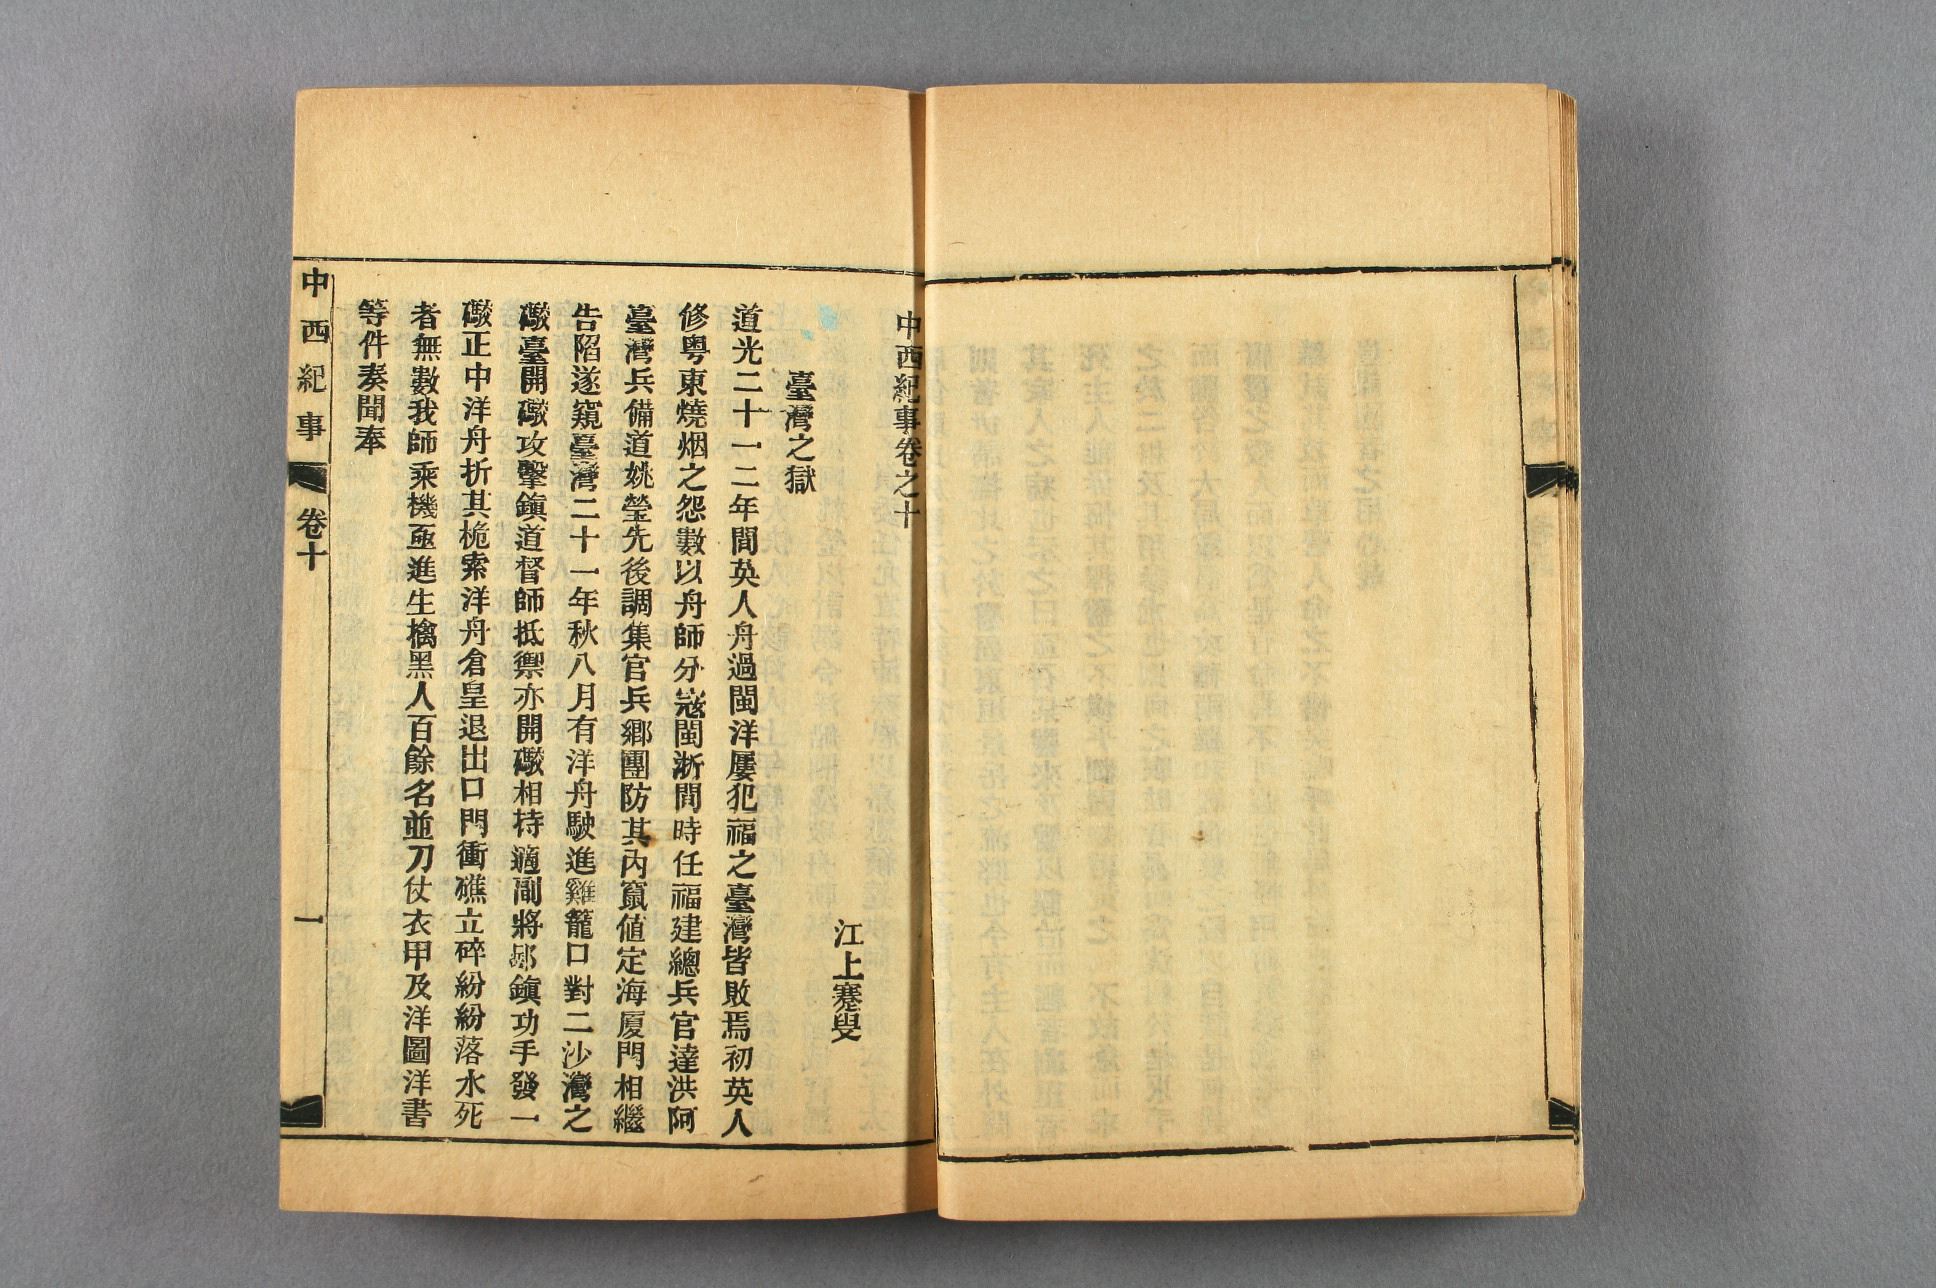 中西紀事卷之十
江上蹇叟
臺灣之獄
道光二十一二年間英人舟過閩洋屢犯福之臺灣皆敗焉初英人
修粤東燒烟之怨數以舟師分寇閩浙間時任福建總兵官達洪阿
臺灣兵備道姚瑩先後調集官兵鄉團防其內竄値定海厦門相繼
告陷遂窺臺灣二十一年秋八月有洋舟駛進雞籠口對二沙灣之
礮臺開礮攻擊鎭道督師抵禦亦開礮相持適副將邱鎭功手發一
礮正中洋舟折其桅索洋舟倉皇退出口門衝礁立碎紛紛落水死
者無數我師乘機亟進生擒黑人百餘名並刀仗衣甲及洋圖洋書
等件奏聞奉
中西紀事
卷十
一